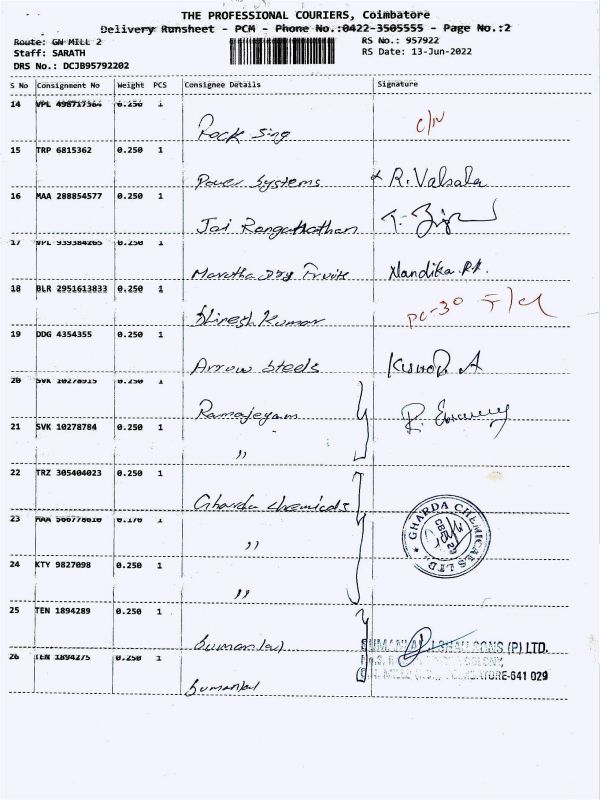 THE PROFESSIONAL COURIERS, Coimbatore
Delivery Runsheet - PCM - Phone No.:0422-3505555 - Page No.:2
Route: GN MILL 2
RS No.: 957922
Staff: SARATH
RS Date: 13-Jun-2022
DRS No.: DCJB95792202
S No Consignment No Weight PCS Consignee Details Signature
14 VPL 498717364 0.250 1
Rock Sing C/N
15 TRP 6815362 0.250 1
Power Systems R. Valsala
16 MAA 288854577 0.250 1
Jai Ranganathan
17 VPL 939384265 0.250 1
Marutha Dry Fruits Nandika R.R.
18 BLR 2951613833 0.250 1
Hiresh Kumar PC-30
19 DDG 4354355 0.250 1
Arrow Steels
20 SVK 10278915 0.250 1
Ramajeyam
21 SVK 10278784 0.250 1
"
22 TRZ 305404023 0.250 1
Gharda Chemicals
23 MAA 566778610 0.170 1
GHARDA CHEMICALS LTD.
"
24 KTY 9827098 0.250 1
"
25 TEN 1894289 0.250 1
Sumanlal
SUMANLAL J SHAH SONS (P) LTD.
26 TEN 1894275 0.250 1
Sumanlal
COIMBATORE-641 029